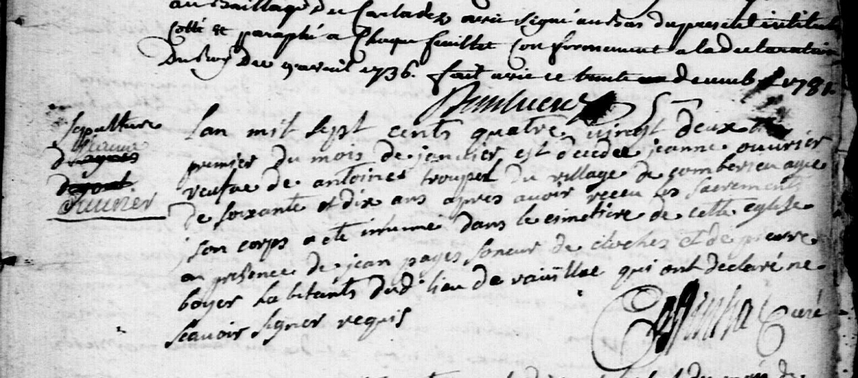 au Baillage du Carladez avie signé au bas du present intitulé
Cotté et paraphé a Chaque feuillet Conformement a la declaration
Du Roy du 9 avril 1736. fait a vic ce trente decembre 1781.
Sepulture
jeanne
ouvrier
Lan mil sept cents quatre vingt deux et le
premier du mois de janvier, est decedée jeanne ouvrier
veufue de antoine trouper du village de comberieu agée
de soixante et dix ans apres avoir receu les sacrements
son corps a eté inhumé dans le cimetiere de cette eglise
en presence de jean pages soneur de cloches et de pierre
boyer habitants dud. lieu de raulhac qui ont declaré ne
scavoir signer requis
Curé